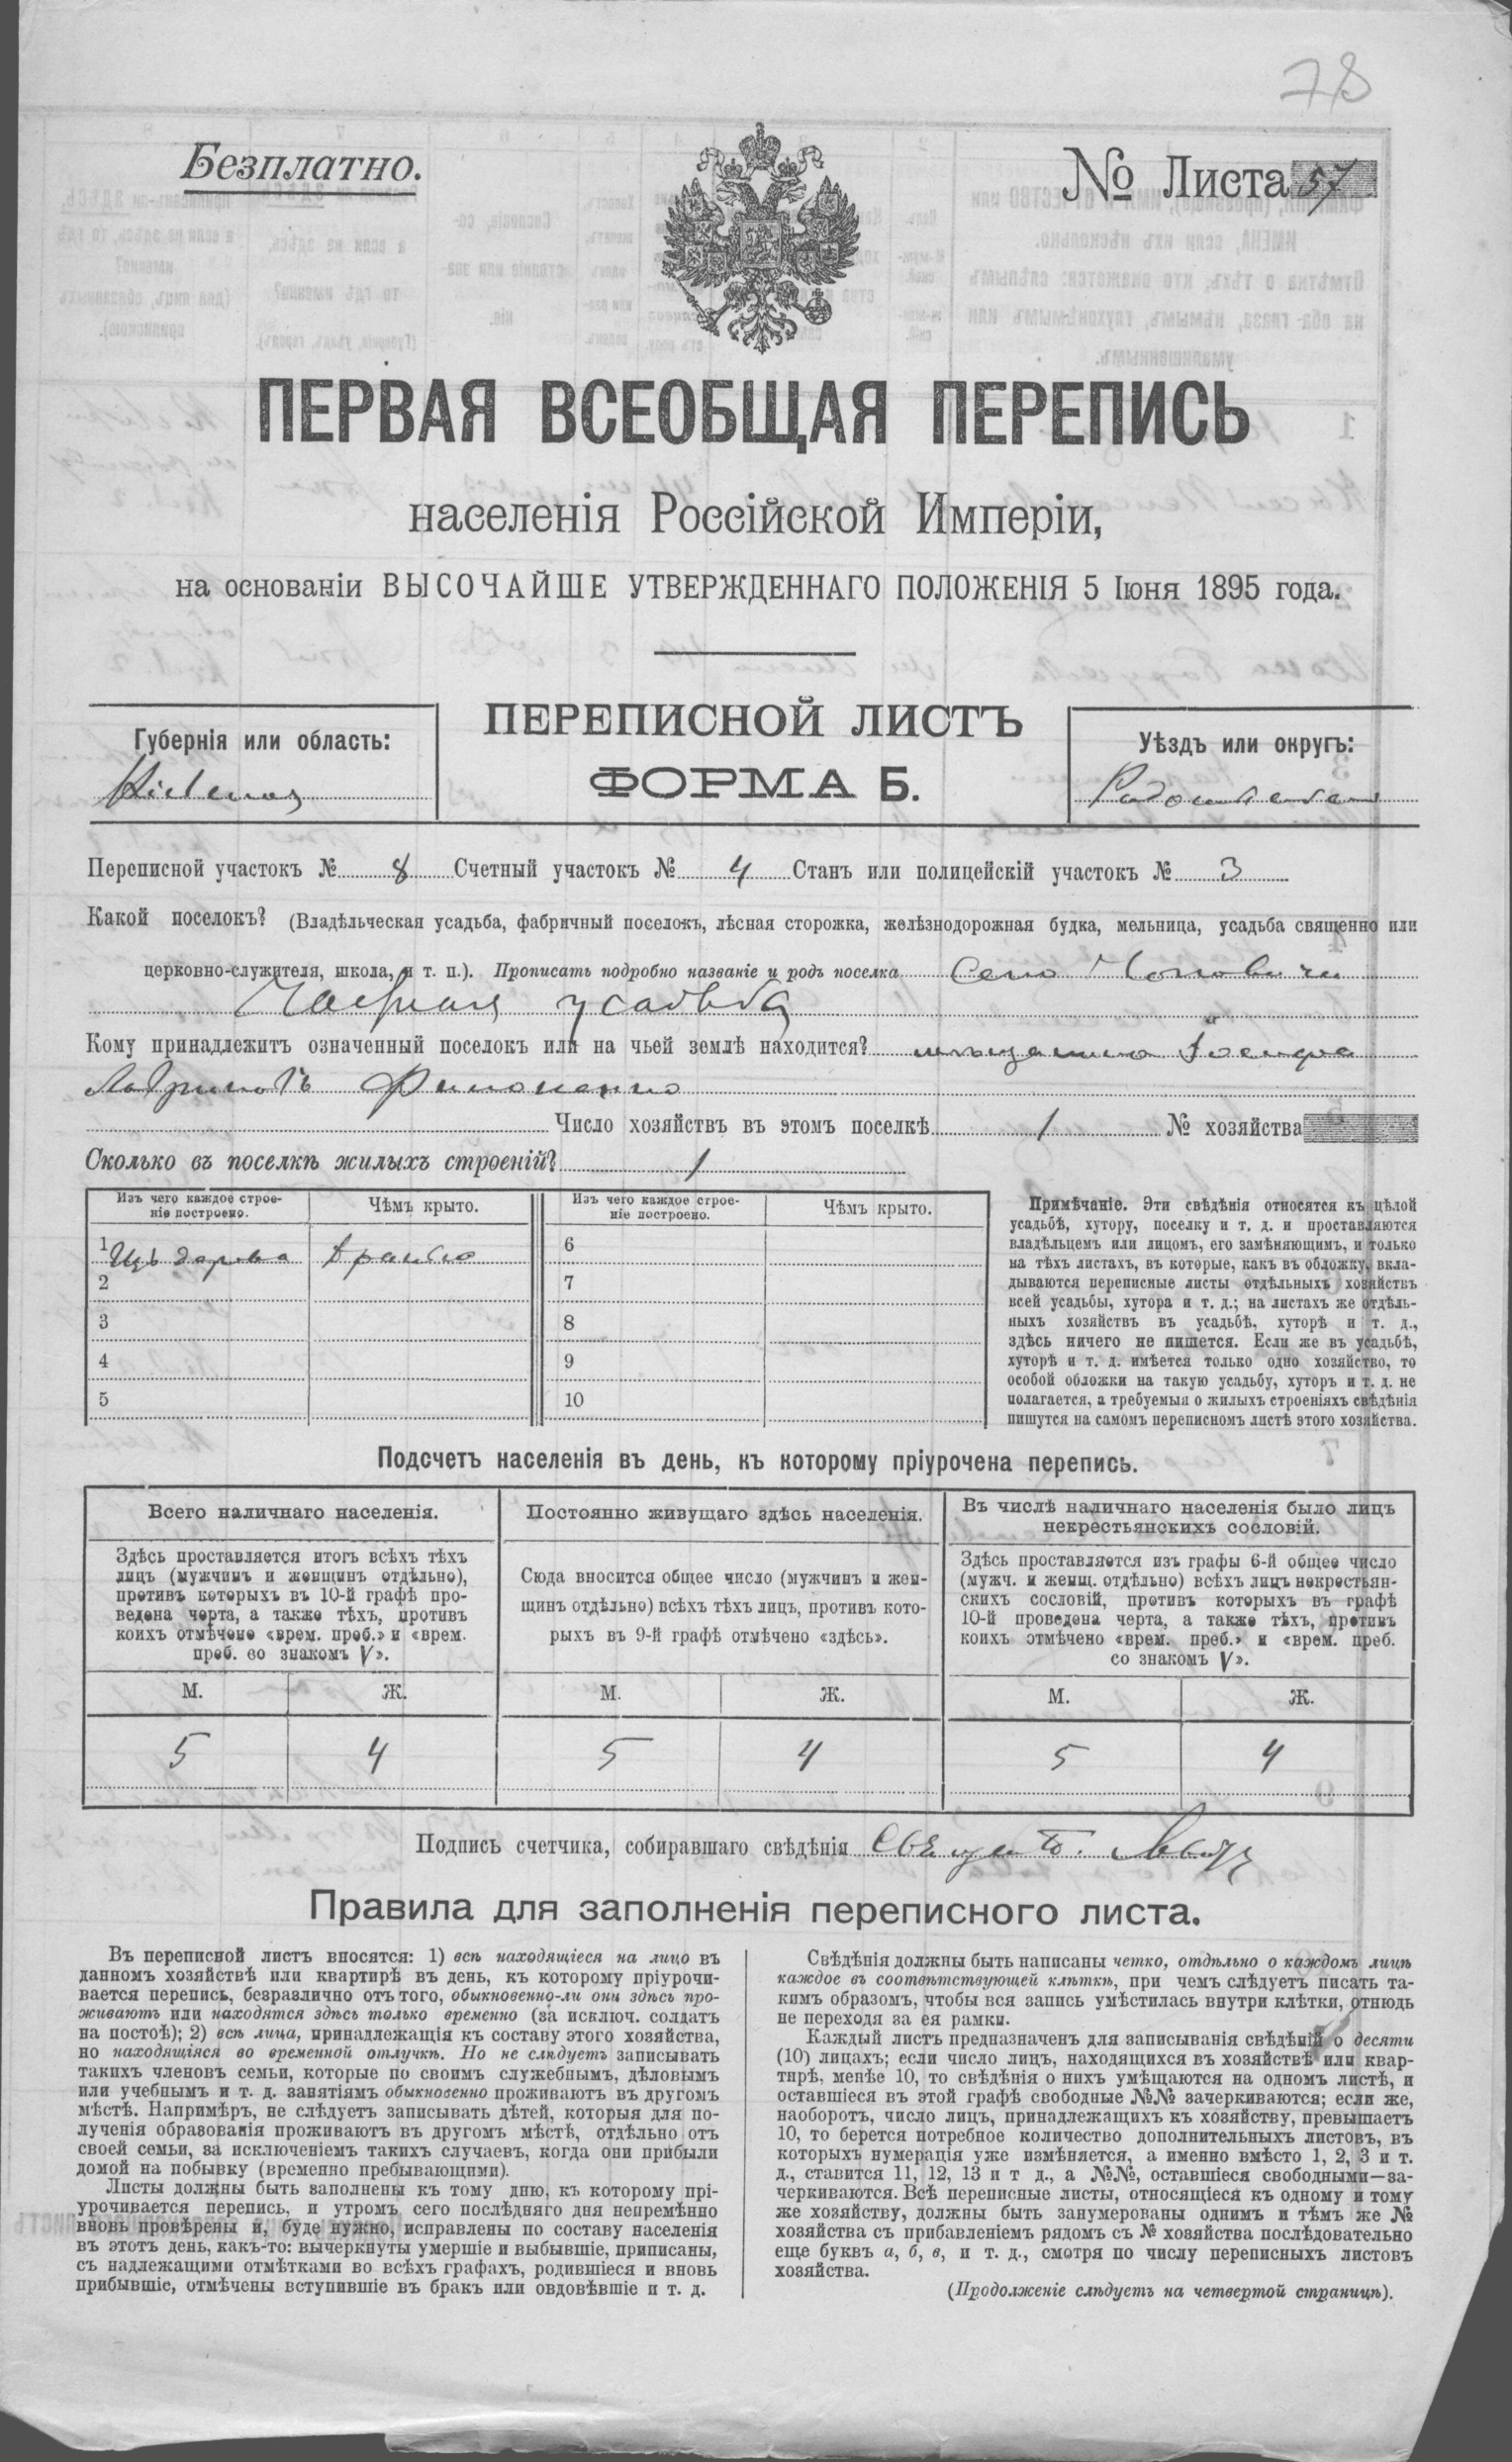 78
Безплатно.
№ Листа 57
ПЕРВАЯ ВСЕОБЩАЯ ПЕРЕПИСЬ
населенія Россійской Имперіи,
на основаніи ВЫСОЧАЙШЕ УТВЕРЖДЕННАГО ПОЛОЖЕНІЯ 5 Іюня 1895 года.
ПЕРЕПИСНОЙ ЛИСТЪ
ФОРМА Б.
Губернія или область:
Кіевская
Уѣздъ или округъ:
Радомысльскій
Переписной участокъ № 8 Счетный участокъ № 4 Станъ или полицейскій участокъ № 3
Какой поселокъ? (Владѣльческая усадьба, фабричный поселокъ, лѣсная сторожка, желѣзнодорожная будка, мельница, усадьба священно или
церковно-служителя, школа, и т. п.). Прописать подробно названіе и родъ поселка Село
усадьба
Кому принадлежитъ означенный поселокъ или на чьей землѣ находится? мѣщанина
Число хозяйствъ въ этомъ поселкѣ 1 № хозяйства
Сколько въ поселкѣ жилыхъ строеній? 1
Изъ чего каждое строе-
ніе построено.
Чѣмъ крыто.
Изъ чего каждое строе-
ніе построено.
Чѣмъ крыто.
1 Изъ дерева
6
2
7
3
8
4
9
5
10
Примѣчаніе. Эти свѣдѣнія относятся къ цѣлой
усадьбѣ, хутору, поселку и т. д. и проставляются
владѣльцемъ или лицомъ, его замѣняющимъ, и только
на тѣхъ листахъ, въ которые, какъ въ обложку, вкла-
дываются переписные листы отдѣльныхъ хозяйствъ
всей усадьбы, хутора и т. д.; на листахъ же отдѣль-
ныхъ хозяйствъ въ усадьбѣ, хуторѣ и т. д.,
здѣсь ничего не пишется. Если же въ усадьбѣ,
хуторѣ и т. д. имѣется только одно хозяйство, то
особой обложки на такую усадьбу, хуторъ и т. д. не
полагается, а требуемыя о жилыхъ строеніяхъ свѣдѣнія
пишутся на самомъ переписномъ листѣ этого хозяйства.
Подсчетъ населенія въ день, къ которому пріурочена перепись.
Всего наличнаго населенія.
Здѣсь проставляется итогъ всѣхъ тѣхъ
лицъ (мужчинъ и женщинъ отдѣльно),
противъ которыхъ въ 10-й графѣ про-
ведена черта, а также тѣхъ, противъ
коихъ отмѣчено «врем. преб.» и «врем.
преб. со знакомъ V».
М. Ж.
5 4
Постоянно живущаго здѣсь населенія.
Сюда вносится общее число (мужчинъ и жен-
щинъ отдѣльно) всѣхъ тѣхъ лицъ, противъ кото-
рыхъ въ 9-й графѣ отмѣчено «здѣсь».
М. Ж.
5 4
Въ числѣ наличнаго населенія было лицъ
некрестьянскихъ сословій.
Здѣсь проставляется изъ графы 6-й общее число
(мужч. и женщ. отдѣльно) всѣхъ лицъ некрестьян-
скихъ сословій, противъ которыхъ въ графѣ
10-й проведена черта, а также тѣхъ, противъ
коихъ отмѣчено «врем. преб.» и «врем. преб.
со знакомъ V».
М. Ж.
5 4
Подпись счетчика, собиравшаго свѣдѣнія
Правила для заполненія переписного листа.
Въ переписной листъ вносятся: 1) всѣ находящіеся на лицо въ
данномъ хозяйствѣ или квартирѣ въ день, къ которому пріурочи-
вается перепись, безразлично отъ того, обыкновенно-ли они здѣсь про-
живаютъ или находятся здѣсь только временно (за исключ. солдатъ
на постоѣ); 2) всѣ лица, принадлежащія къ составу этого хозяйства,
но находящіяся во временной отлучкѣ. Но не слѣдуетъ записывать
такихъ членовъ семьи, которые по своимъ служебнымъ, дѣловымъ
или учебнымъ и т. д. занятіямъ обыкновенно проживаютъ въ другомъ
мѣстѣ. Напримѣръ, не слѣдуетъ записывать дѣтей, которыя для по-
лученія образованія проживаютъ въ другомъ мѣстѣ, отдѣльно отъ
своей семьи, за исключеніемъ такихъ случаевъ, когда они прибыли
домой на побывку (временно пребывающими).
Листы должны быть заполнены къ тому дню, къ которому прі-
урочивается перепись, и утромъ сего послѣдняго дня непремѣнно
вновь провѣрены и, буде нужно, исправлены по составу населенія
въ этотъ день, какъ-то: вычеркнуты умершіе и выбывшіе, приписаны,
съ надлежащими отмѣтками во всѣхъ графахъ, родившіеся и вновь
прибывшіе, отмѣчены вступившіе въ бракъ или овдовѣвшіе и т. д.
Свѣдѣнія должны быть написаны четко, отдѣльно о каждомъ лицѣ
каждое въ соотвѣтствующей клѣткѣ, при чемъ слѣдуетъ писать та-
кимъ образомъ, чтобы вся запись умѣстилась внутри клѣтки, отнюдь
не переходя за ея рамки.
Каждый листъ предназначенъ для записыванія свѣдѣній о десяти
(10) лицахъ; если число лицъ, находящихся въ хозяйствѣ или квар-
тирѣ, менѣе 10, то свѣдѣнія о нихъ умѣщаются на одномъ листѣ, и
оставшіеся въ этой графѣ свободные №№ зачеркиваются; если же,
наоборотъ, число лицъ, принадлежащихъ къ хозяйству, превышаетъ
10, то берется потребное количество дополнительныхъ листовъ, въ
которыхъ нумерація уже измѣняется, а именно вмѣсто 1, 2, 3 и т.
д., ставится 11, 12, 13 и т д., а №№, оставшіеся свободными—за-
черкиваются. Всѣ переписные листы, относящіеся къ одному и тому
же хозяйству, должны быть занумерованы однимъ и тѣмъ же №
хозяйства съ прибавленіемъ рядомъ съ № хозяйства послѣдовательно
еще буквъ а, б, в, и т. д., смотря по числу переписныхъ листовъ
хозяйства.
(Продолженіе слѣдуетъ на четвертой страницѣ).